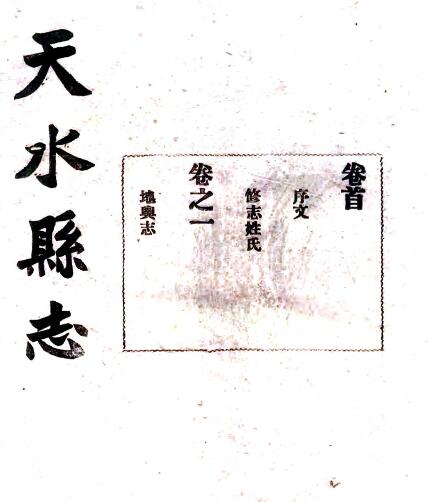 卷首
序文
修志姓氏
卷之一
地輿志
天水縣志